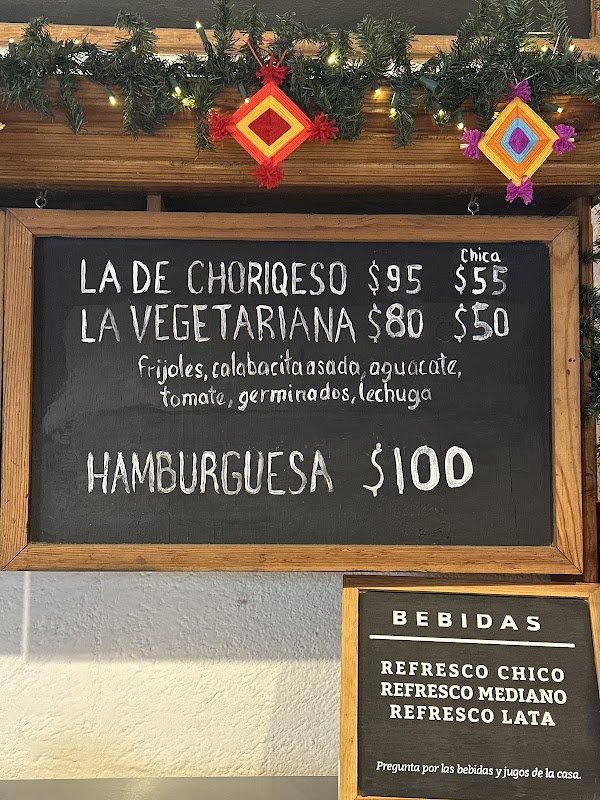 Chica
LA DE CHORIQESO $95 $55
LA VEGETARIANA $80 $50
frijoles, calabacita asada, aguacate,
tomate, germinados, lechuga
HAMBURGUESA $100
BEBIDAS
REFRESCO CHICO
REFRESCO MEDIANO
REFRESCO LATA
Pregunta por las bebidas y jugos de la casa.